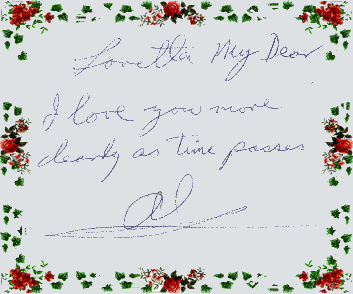 Loretta My Dear
I love you more
dearly as time passes
Al